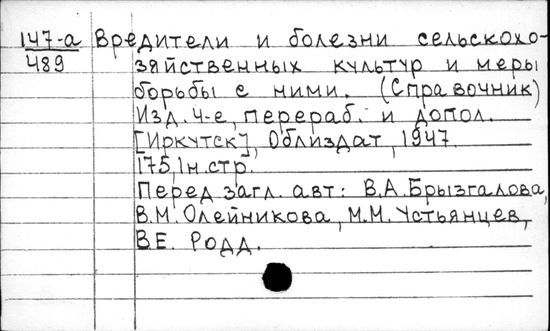 147-а Вредители и болезни сельскохо-
489 зяйственных культур и меры
борьбы с ними. (Справочник)
Изд. 4-е, перераб. и допол.
[Иркутск], Облиздат, 1947.
175, 1н.стр.
Перед загл. авт: В.А. Брызгалова,
В.М. Олейникова, М.М. Устьянцев,
В.Е. Родд.